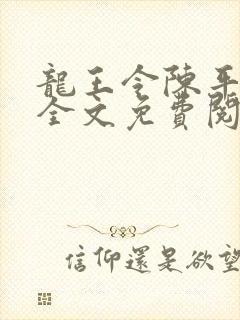 龍王令陳平
全文免費閱
信仰還是欲望